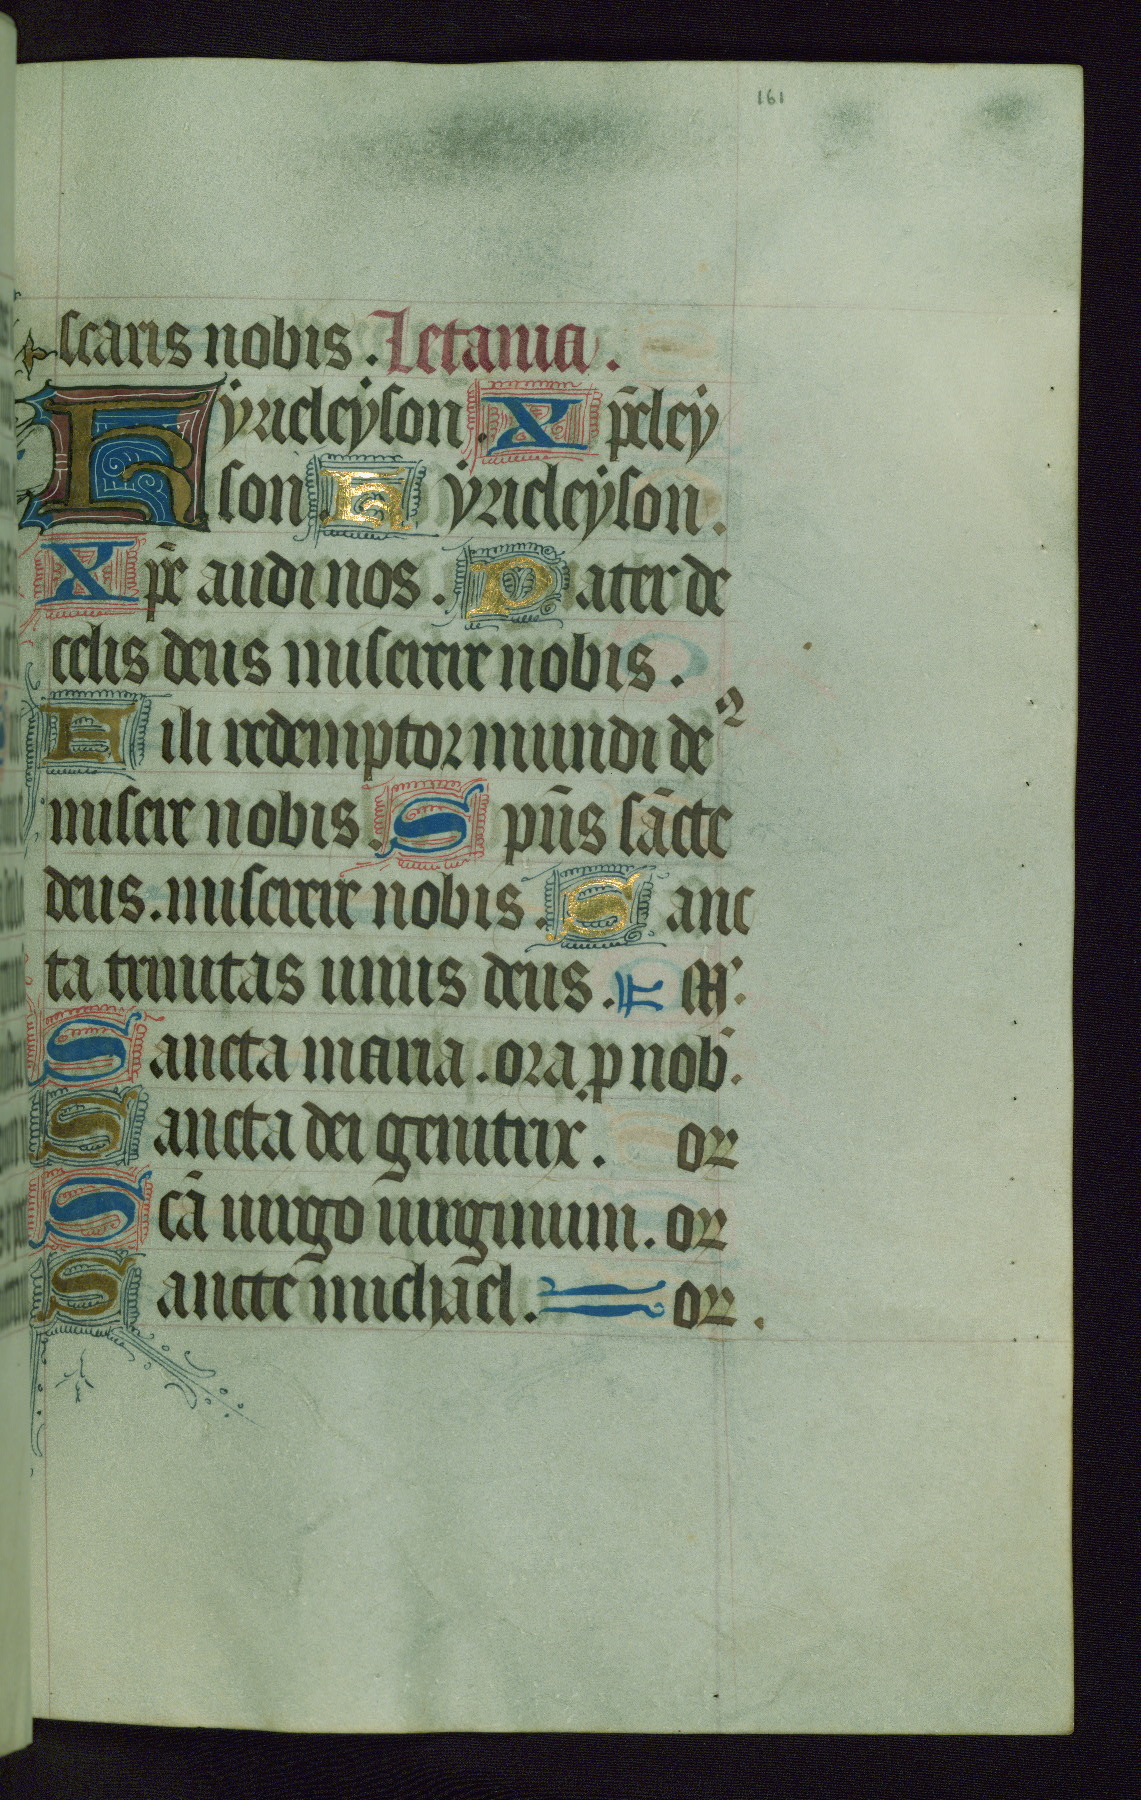 161
scaris nobis. Letania.
Kyrieleyson. Xp̄eley
son. Kyrieleyson.
Xp̄e audi nos. Pater de
celis deus miserere nobis.
Fili redemptor mundi deꝰ
misere nobis. Sp̄us sācte
deus. miserere nobis. Sanc
ta trinitas unus deus. M̄.
Sancta maria. ora p nob̄.
Sancta dei genitrix. or
Scā uirgo uirginum. or
Sancte michael. or.